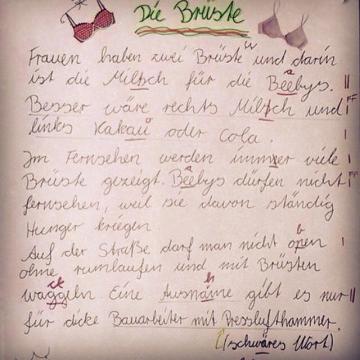 Die Brüste
Frauen haben zwei Brüste und darin
ist die Miltsch für die Beebys.
Besser wäre rechts Miltsch und
links Kakauu oder Cola.
Im Fernsehen werden immer viele
Brüste gezeigt. Beebys dürfen nicht
fernsehen, weil sie davon ständig
Hunger kriegen
Auf der Straße darf man nicht oben
ohne rumlaufen und mit Brüsten
waggeln Eine Ausname gibt es nur
für dicke Bauarbeiter mit Presslufthammer.
(schwäres Wort)